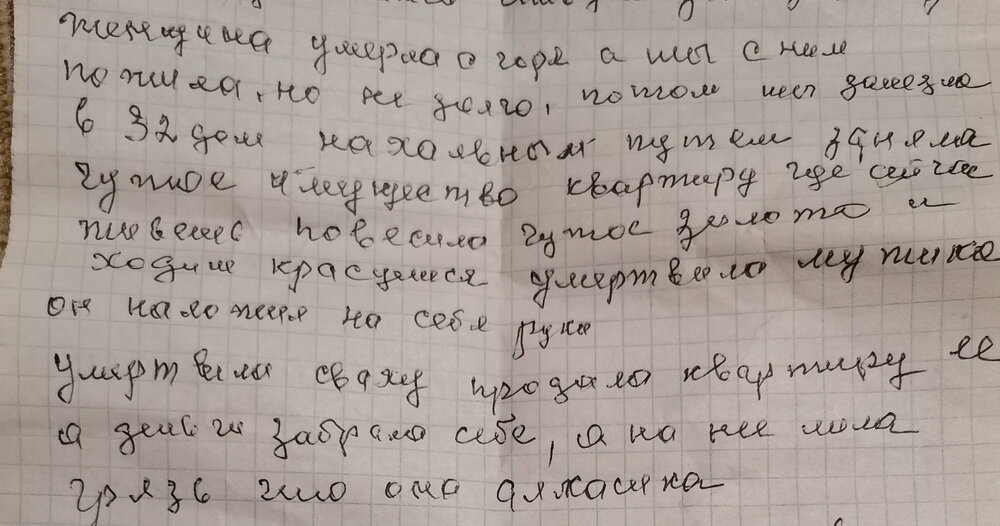 женщина умерла с горя а ты с ним
пожила, но не долго, потом ты залезла
в 32 дом нахальным путем заняла
чужое имущество квартиру где сейчас
живешь повесила чужое золото и
ходиш красуешся умертвила мужика
он наложил на себя руки
умертвила сваху продала квартиру ее
а деньги забрала себе, а на нее лила
грязь что она алкашка